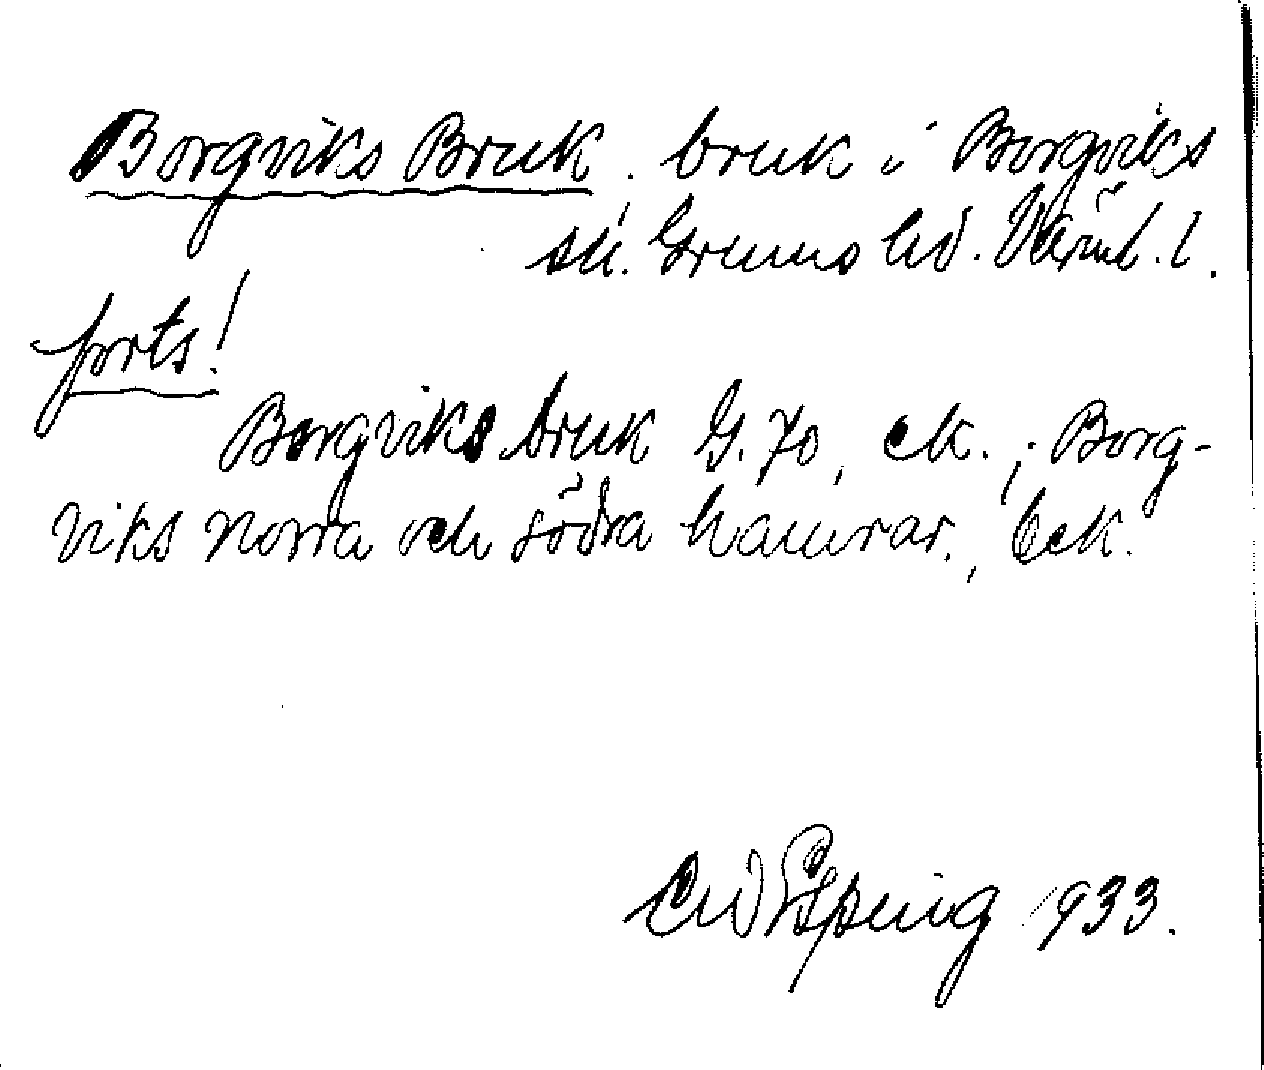 Borgviks Bruk, bruk i Borgviks
sn. Grums hd. Värml. l.
forts!
Borgviks bruk G. 70, ek.; Borg-
viks norra och södra hamrar., bek.
Espeng 1933.